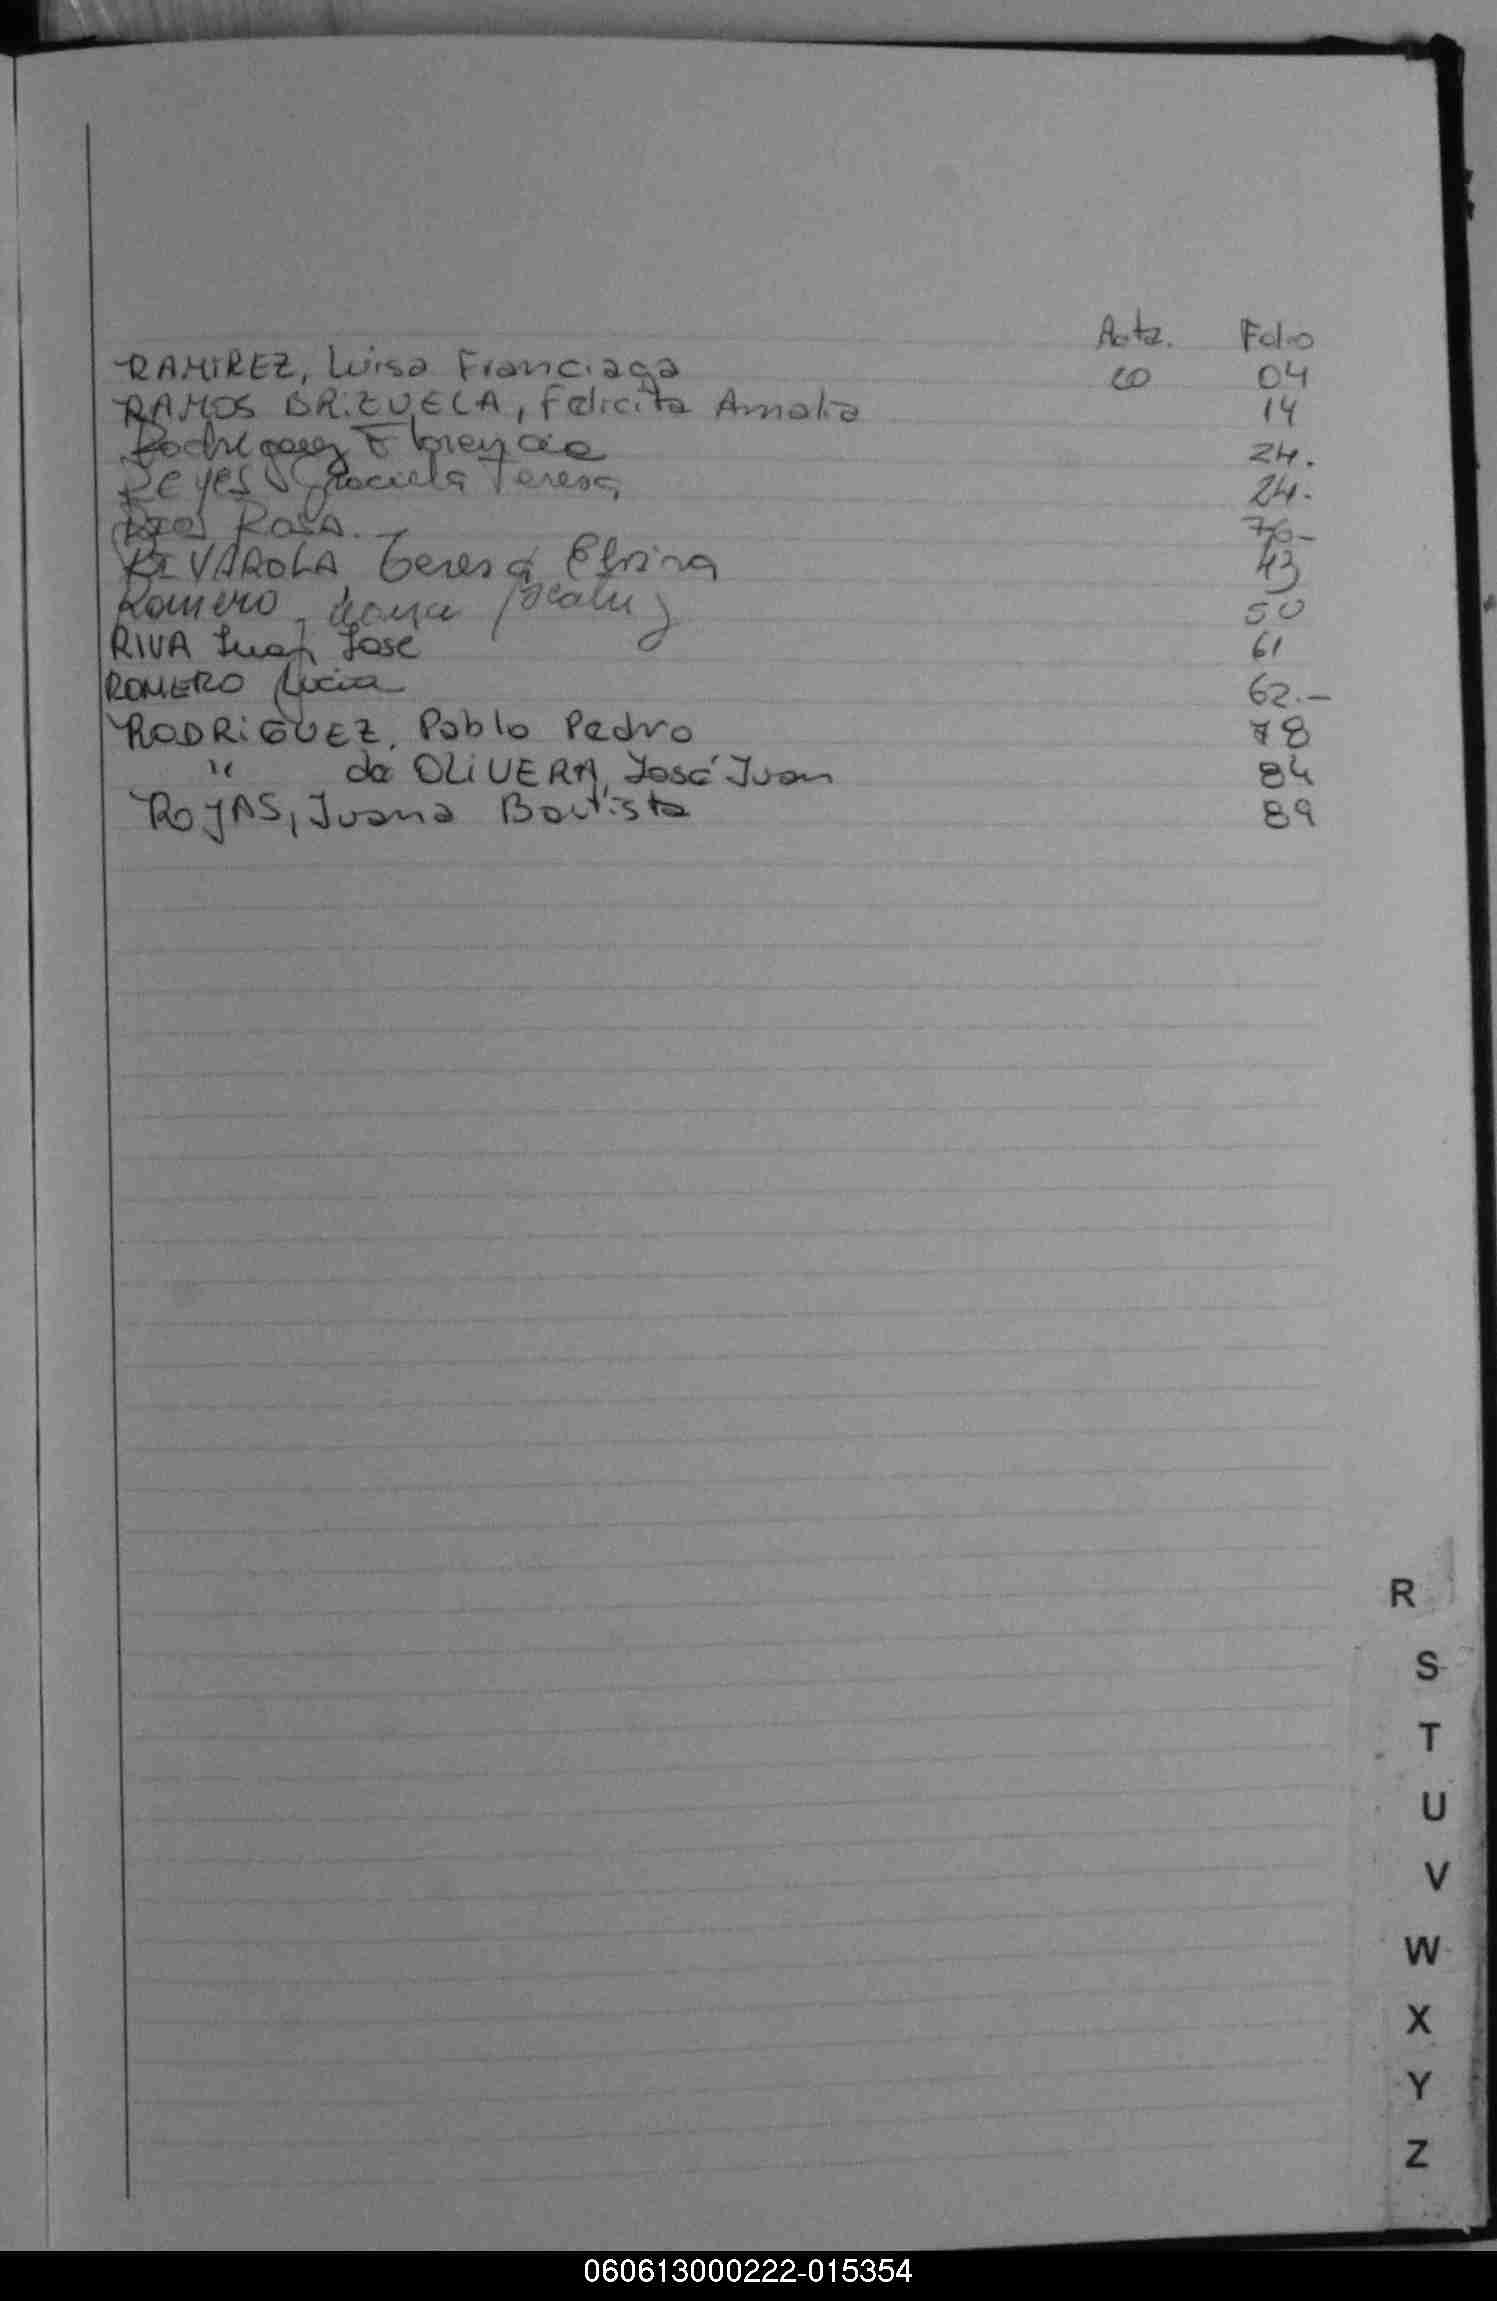 Acta. Folio
RAMIREZ, Luisa Franciaga 04
RAMOS BRIZUELA, Felicita Amalia 14
Rodriguez Florencia 24.
Reyes Graciela Teresa 24.
Rosa. 
RIVAROLA Teresa Elvira 43
Romero, Beatriz 50
RIVA Juan José 61
ROMERO Lucia 62.-
RODRiGUEZ, Pablo Pedro 78
" de OLiVERA, José Juan 84
ROJAS, Juana Bautista 89
R
S
T
U
V
W
X
Y
Z
060613000222-015354